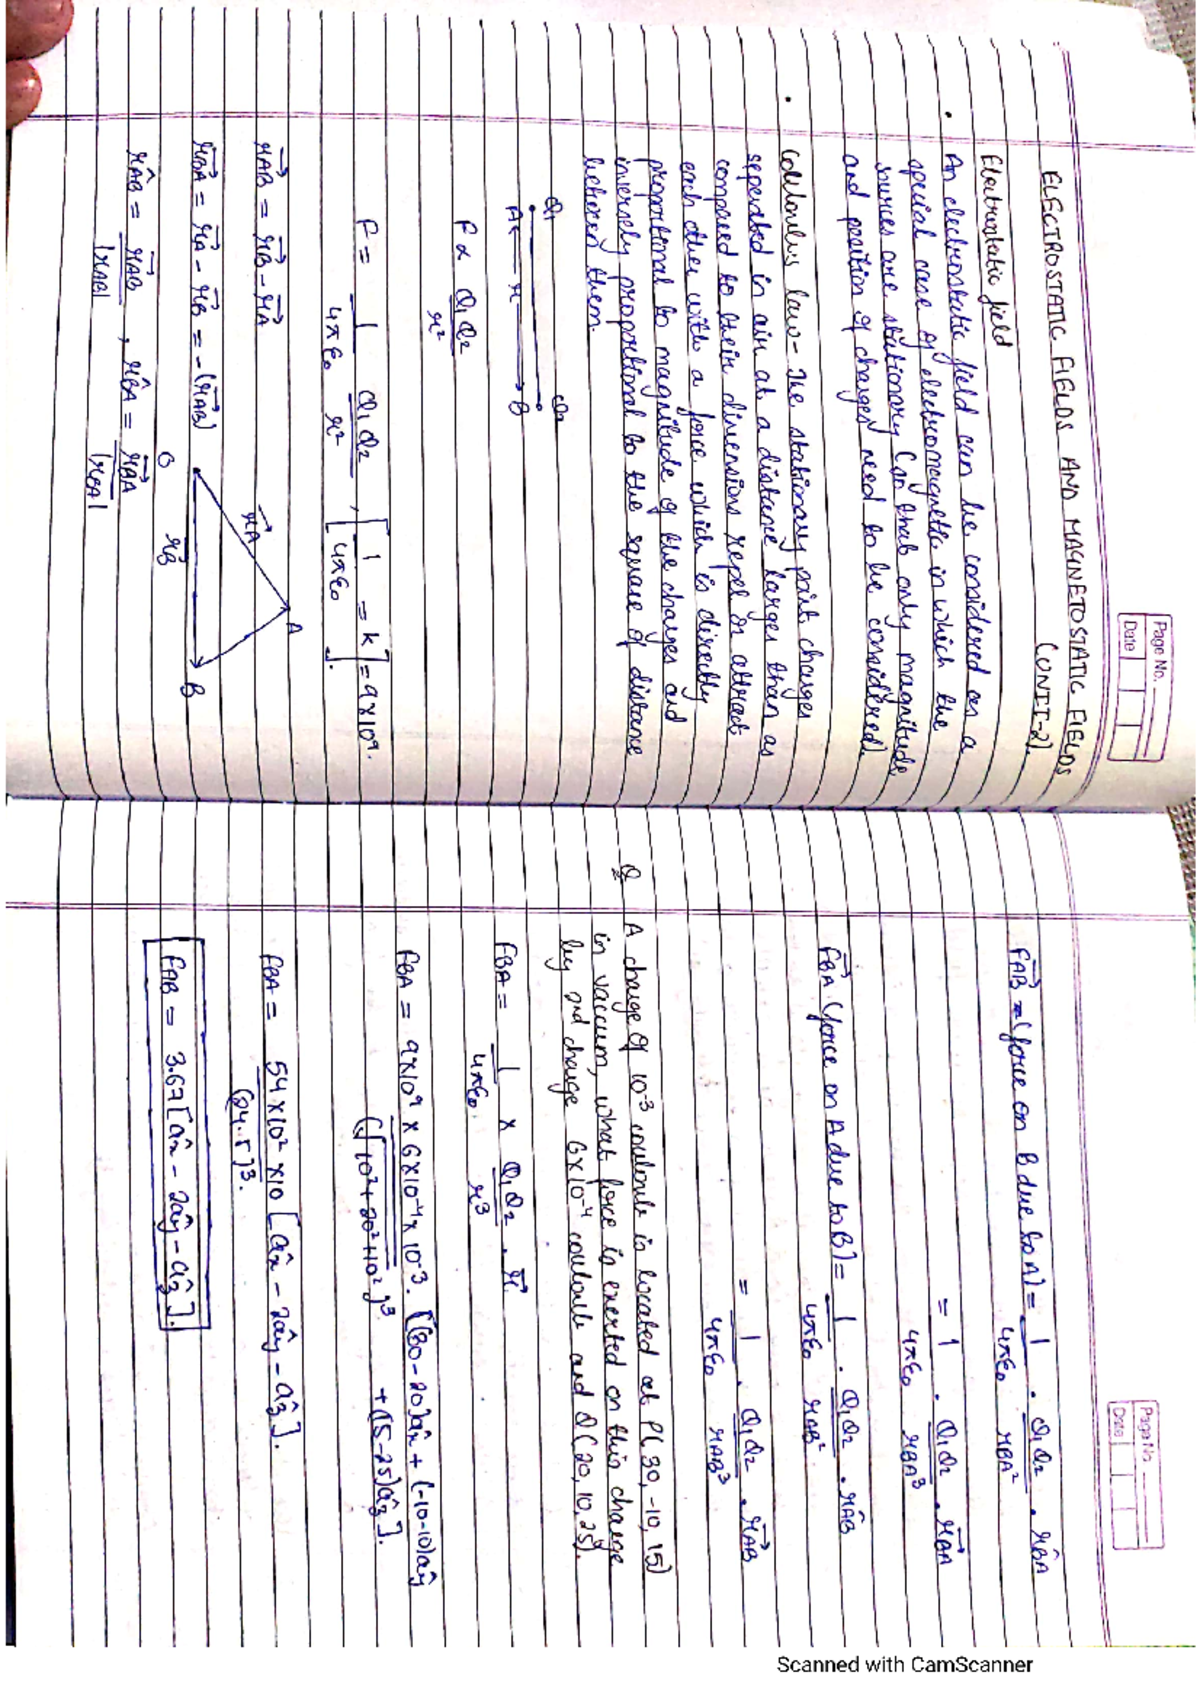 Page No.
Date
ELECTROSTATIC FIELDS AND MAGNETOSTATIC FIELDS
(UNIT-2).
Electrostatic field
• An electrostatic field can be considered as a
special case of electromagnetic in which the
sources are stationary (so that only magnitude
and position of charges need to be considered).
• Coulombs law - The stationary point charges
seperated in air at a distance larger than as
compared to their dimensions repel or attract
each other with a force which is directly
promotional to magnitude of the charges and
inversely propotional to the square of distance
between them.
Q1 Q2
A ← r → B
F ∝ Q1Q2 / r²
F = 1/4πε0 Q1Q2/r², [1/4πε0 = k] = 9×10⁹.
r⃗AB = r⃗B - r⃗A
r⃗BA = r⃗A - r⃗B = -(r⃗AB)
r̂AB = r⃗AB/|rAB| , r̂BA = r⃗BA/|rBA|
A
r⃗A
B
O
r⃗B
Page No.
Date
F⃗AB = (force on B due to A) = 1/4πε0 . Q1Q2/rBA² . r̂BA
= 1/4πε0 . Q1Q2/rBA³ . r⃗BA
F⃗BA (force on A due to B) = 1/4πε0 . Q1Q2/rAB² . r̂AB
= 1/4πε0 . Q1Q2/rAB³ . r⃗AB
Q A charge of 10⁻³ coulomb is located at P(30, -10, 15)
in vaccum, what force is exerted on this charge
by 2nd charge 6×10⁻⁴ coulomb and Q(20, 10, 25).
FBA = 1/4πε0 × Q1Q2/r³ . r⃗
FBA = 9×10⁹ × 6×10⁻⁴ × 10⁻³ . [(30-20)âx + (-10-10)ây
(√10²+20²+10²)³ + (15-25)âz].
FBA = 54×10²×10 [âx - 2ây - âz].
(24.5)³.
FAB = 3.67[âx - 2ây - âz].
Scanned with CamScanner